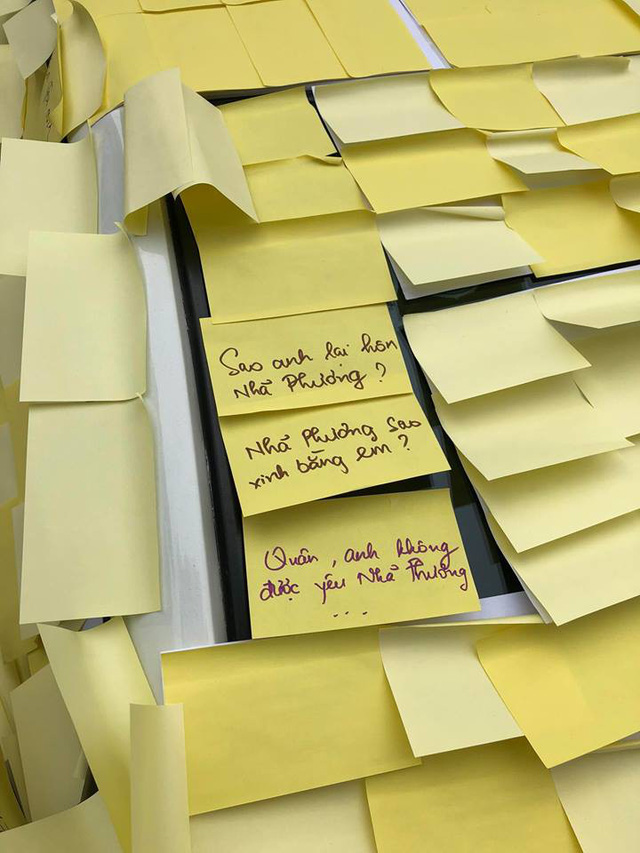 Sao anh lại hôn
Nhã Phương ?
Nhã Phương sao
xinh bằng em ?
Quân , anh không
được yêu Nhã Phương
...